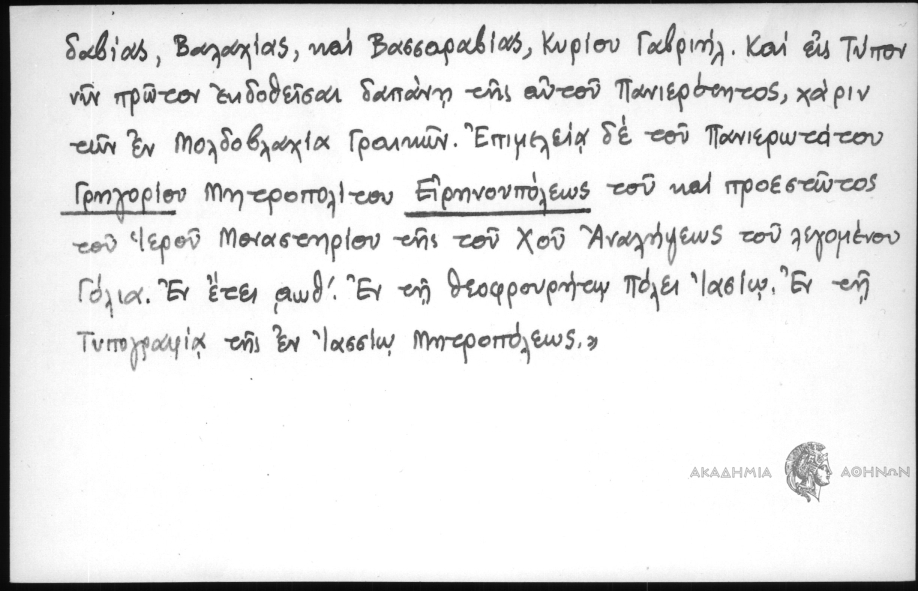 δαβίας, Βαλαχίας, καί Βασσαραβίας, Κυρίου Γαβριήλ. Καί εἰς Τύπον
νῦν πρῶτον ἐκδοθεῖσαι δαπάνῃ τῆς αὐτοῦ Πανιερότητος, χάριν
τῶν ἐν Μολδοβλαχίᾳ Γραικῶν. Ἐπιμελείᾳ δέ τοῦ Πανιερωτάτου
Γρηγορίου Μητροπολίτου Εἰρηνουπόλεως τοῦ καί προεστῶτος
τοῦ Ἱεροῦ Μοναστηρίου τῆς τοῦ Χοῦ Ἀναλήψεως τοῦ λεγομένου
Γόλια. Ἐν ἔτει ͵αωθ΄. Ἐν τῇ θεοφρουρήτῳ πόλει Ἰασίῳ. Ἐν τῇ
Τυπογραφίᾳ τῆς ἐν Ἰασσίῳ Μητροπόλεως.»
ΑΚΑΔΗΜΙΑ ΑΘΗΝΩΝ